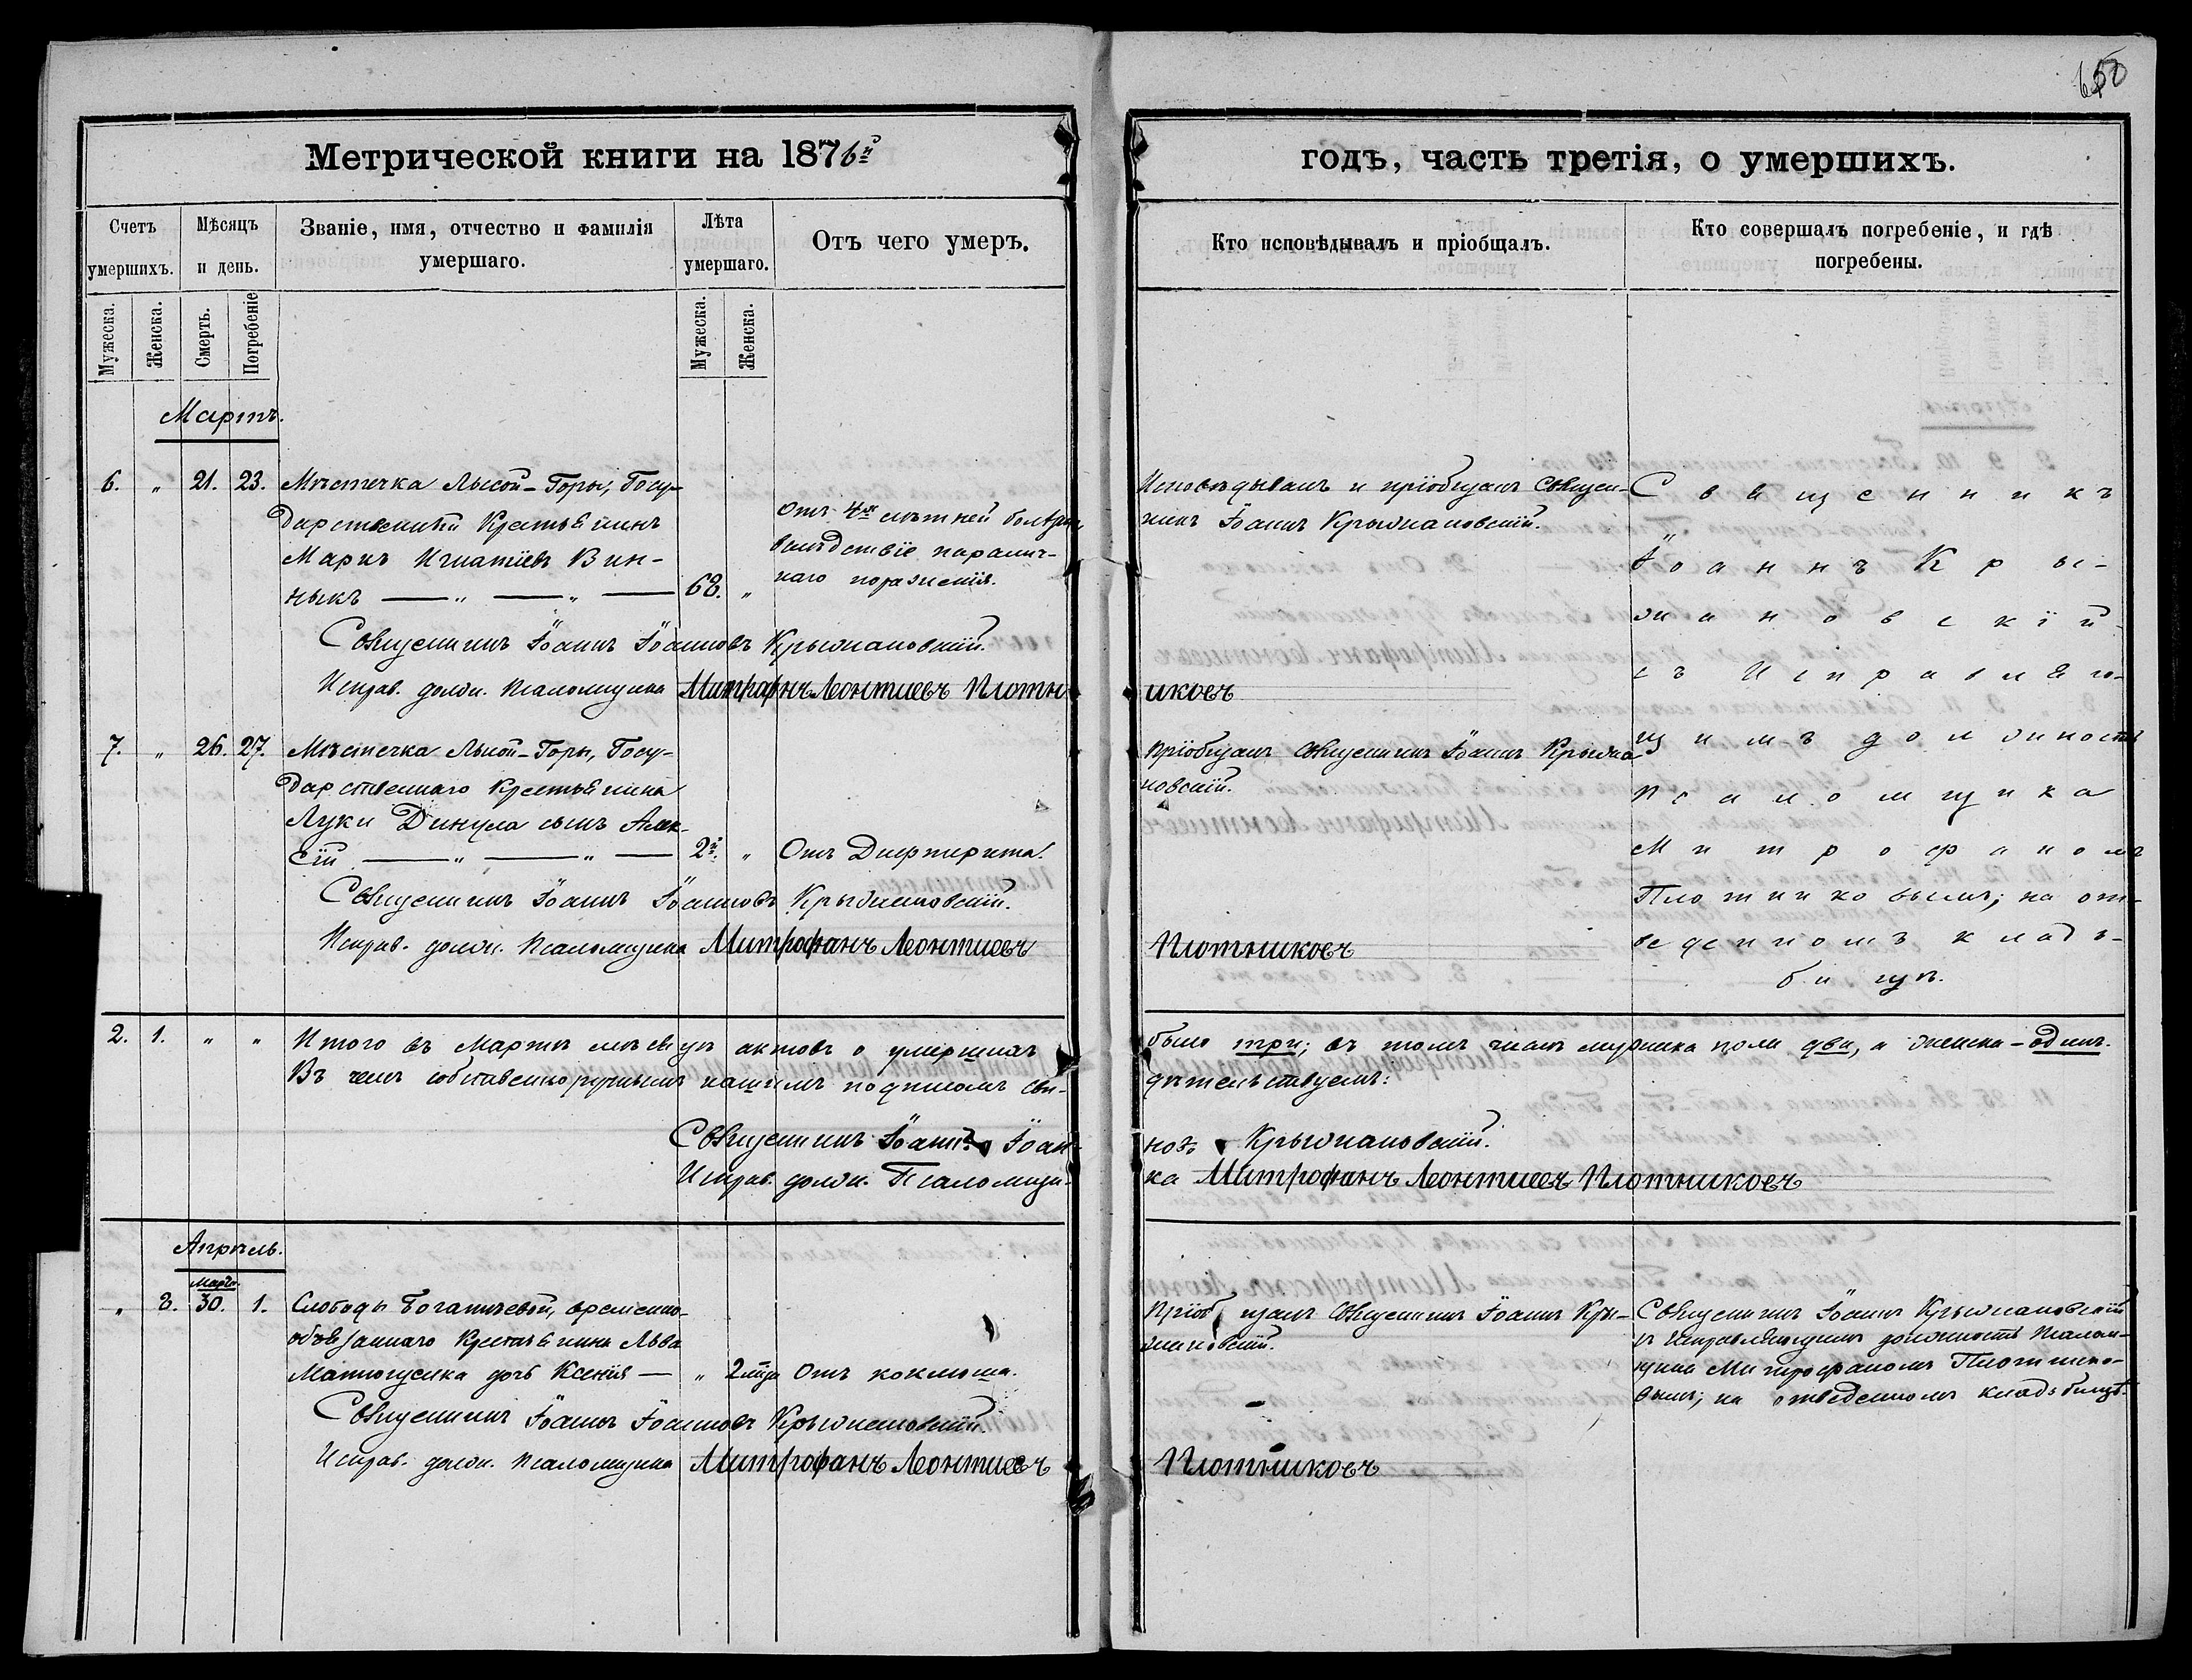 650
Метрической книги на 1876й
годъ, часть третія, о умершихъ.
Счетъ умершихъ.
Мѣсяцъ и день.
Званіе, имя, отчество и фамилія умершаго.
Лѣта умершаго.
Отъ чего умеръ.
Кто исповѣдывалъ и пріобщалъ.
Кто совершалъ погребеніе, и гдѣ погребены.
Мужеска.
Женска.
Смерть.
Погребеніе
Мужеска.
Женска.
Мартъ.
6. " 21. 23. Мѣстечка Лысой-Горы, Госу-
дарственный Крестьянинъ
Маркъ Игнатіевъ Вин-
никъ — " — " — 68. "
Отъ 4хъ лѣтней болѣзни
вслѣдствіе паралич-
наго пораженія.
Исповѣдывалъ и пріобщалъ Священ-
никъ Іоаннъ Крыжановскій.
Священникъ
Іоаннъ Кры-
жановскій
съ Исправляю-
щимъ должность
псаломщика
Митрофаномъ
Плотниковымъ; на от-
веденномъ кладъ-
бищѣ.
Священникъ Іоаннъ Іоанновъ Крыжановскій.
Исправ. долж. Псаломщика Митрофанъ Леонтиевъ Плотн
иковъ
7. " 26. 27. Мѣстечка Лысой-Горы, Госу-
дарственнаго Крестьянина
Луки Динула сынъ Алек-
сій — " — " — 2й. " Отъ Дифтерита.
Пріобщалъ Священникъ Іоаннъ Крыжа
новскій.
Священникъ Іоаннъ Іоанновъ Крыжановскій.
Исправ. долж. Псаломщика Митрофанъ Леонтиевъ
Плотниковъ
2. 1. " " Итого въ Мартѣ мѣсяцѣ актовъ о умершихъ
было три; въ томъ числѣ мужеска пола два, а женска - одинъ.
Въ чемъ собственноручнымъ нашимъ подписомъ сви-
дѣтельствуемъ:
Священникъ Іоаннъ Іоан-
новъ Крыжановскій.
Исправ. долж. Псаломщи-
ка Митрофанъ Леонтиевъ Плотниковъ
Апрѣль.
Марта
" 2. 30. 1. Слободы Богачевой, временно-
обязаннаго Крестьянина Льва
Матюгуенка дочь Ксенія — " 2мца Отъ коклюша.
Пріобщалъ Священникъ Іоаннъ Кры-
жановскій.
Священникъ Іоаннъ Крыжановскій
съ Исправляющимъ должность Псалом-
щика Митрофаномъ Плотнико-
вымъ; на отведенномъ кладъбищѣ.
Священникъ Іоаннъ Іоанновъ Крыжановскій.
Исправ. долж. Псаломщика Митрофанъ Леонтиевъ
Плотниковъ